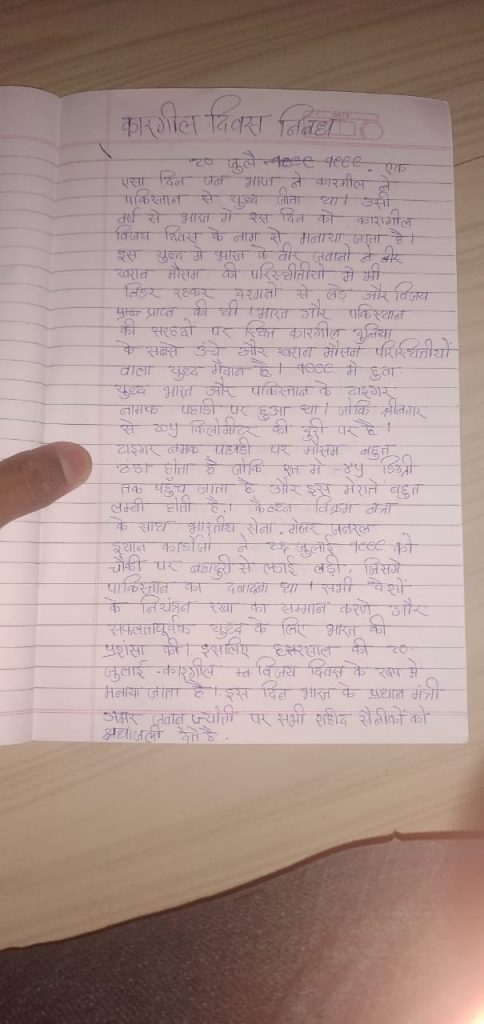 कारगील दिवस निबंध
२० जुलै १९९९ १९९९. एक
एसा दिन जब भारत ने कारगील ने
पाकिस्तान से युध्द जीता था। उसी
वर्ष से भारत मे इस दिन को कारागील
विजय दिवस के नाम से मनाया जाता है।
इस युध्द मे भारत के वीर जवानो ने वीर
खराब मौसम की परिस्थितीयो मे भी
निडर रहकर दुश्मनो से लडे और विजय
प्राप्त की थी। भारत और पकिस्थान
की सरहदो पर स्थित कारगील दुनिया
के सबसे ऊंचे और खराब मौसम परिस्थितीयों
वाला युध्द मैदान है। १९९९ मे हुवा
युध्द भारत और पकिस्तान के टाइगर
नामक पहाडी पर हुआ था। जोकि श्रीनगर
से २०५ किलोमीटर की दुरी पर है।
टाइगर नमक पहाडी पर मौसम बहुत
ठंडा होता है जोकि रात मे -४५ डिग्री
तक पहुँच जाता है और इस मे राते बहुत
लम्बी होती है.। कैप्टन विक्रम बत्रा
के साथ भारतीय सेना. मेजर जनरल
इयान कार्डोजो ने २६ जुलाई १९९९ को
चौकी पर बहादुरी से लडाई लडी. जिसमे
पाकिस्तान का दबादबा था। सभी देशों
के नियंत्रन रखा का सम्मान करणे और
सफलतापूर्वक युध्द के लिए भारत की
प्रशंसा की। इसलिए हरसाल की २०
जुलाई .कारगील विजय दिवस के रूप मे
मनाया जाता है। इस दिन भारत के प्रधान मंत्री
अमर जवान ज्योती पर सभी शहीद सैनीकों को
श्रधांजली देते है.